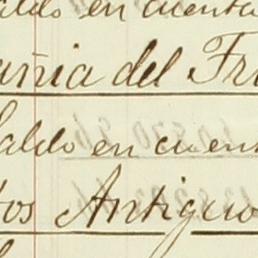 aldo en cuenta
añia del Fr
aldo en cuent
tos Antiguo